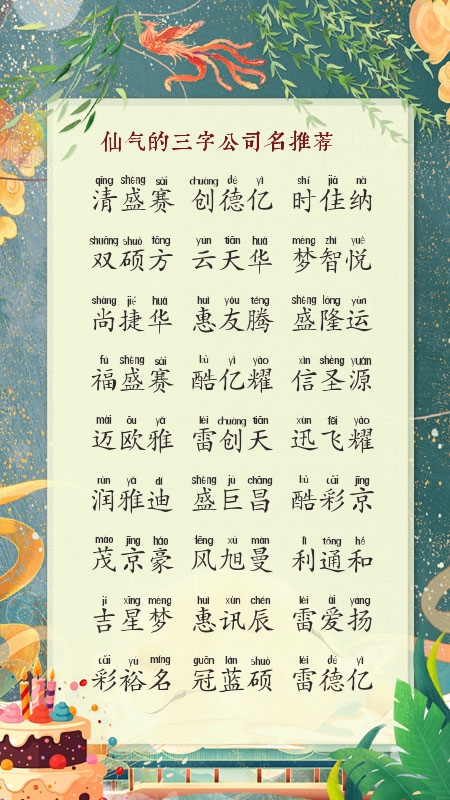 仙气的三字公司名推荐
qīng shèng sài chuàng dé yì shí jiā nà
清盛赛 创德亿 时佳纳
shuāng shuò fāng yún tiān huá mèng zhì yuè
双硕方 云天华 梦智悦
shàng jié huá huì yǒu téng shèng lóng yùn
尚捷华 惠友腾 盛隆运
fú shèng sài kù yì yào xìn shèng yuán
福盛赛 酷亿耀 信圣源
mài ōu yǎ léi chuàng tiān xùn fēi yào
迈欧雅 雷创天 迅飞耀
rùn yǎ dí shèng jù chāng kù cǎi jīng
润雅迪 盛巨昌 酷彩京
mào jīng háo fēng xù màn lì tōng hé
茂京豪 风旭曼 利通和
jí xīng mèng huì xùn chén léi ài yáng
吉星梦 惠讯辰 雷爱扬
cǎi yù míng guān lán shuò léi dé yì
彩裕名 冠蓝硕 雷德亿